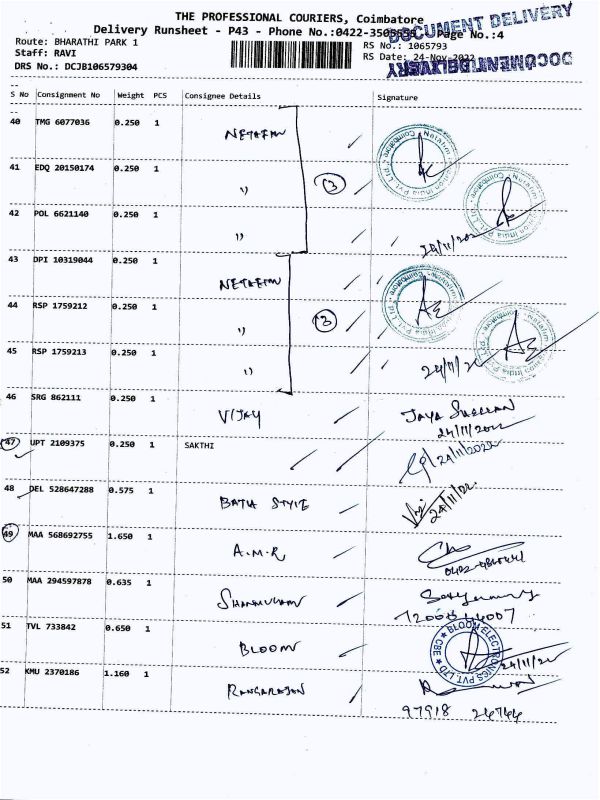 THE PROFESSIONAL COURIERS, Coimbatore
DOCUMENT DELIVERY
Delivery Runsheet - P43 - Phone No.:0422- Page No.:4
Route: BHARATHI PARK 1 RS No.: 1065793
Staff: RAVI RS Date: 24-Nov-2022
DOCUMENT DELIVERY
DRS No.: DCJB106579304
S No Consignment No Weight PCS Consignee Details Signature
40 TMG 6077036 0.250 1 NETAFIM
41 EDQ 20150174 0.250 1 " (3)
42 POL 6621140 0.250 1 "
43 DPI 10319044 0.250 1 NETAFIM
44 RSP 1759212 0.250 1 " (3)
45 RSP 1759213 0.250 1 " 24/11/
46 SRG 862111 0.250 1 VIJAY JAYA
24/11/2022
47 UPT 2109375 0.250 1 SAKTHI 24/11/2022
48 DEL 528647288 0.575 1 BATIK STYLE 24/11/22
49 MAA 568692755 1.650 1 A.M.R
50 MAA 294597878 0.635 1 SHANMUGAM
51 TVL 733842 0.650 1 BLOOM BLOOM ELECTRONICS PVT. LTD ★ CBE ★
24/11/22
52 KMU 2370186 1.160 1 RANGARAJAN
97918 24744